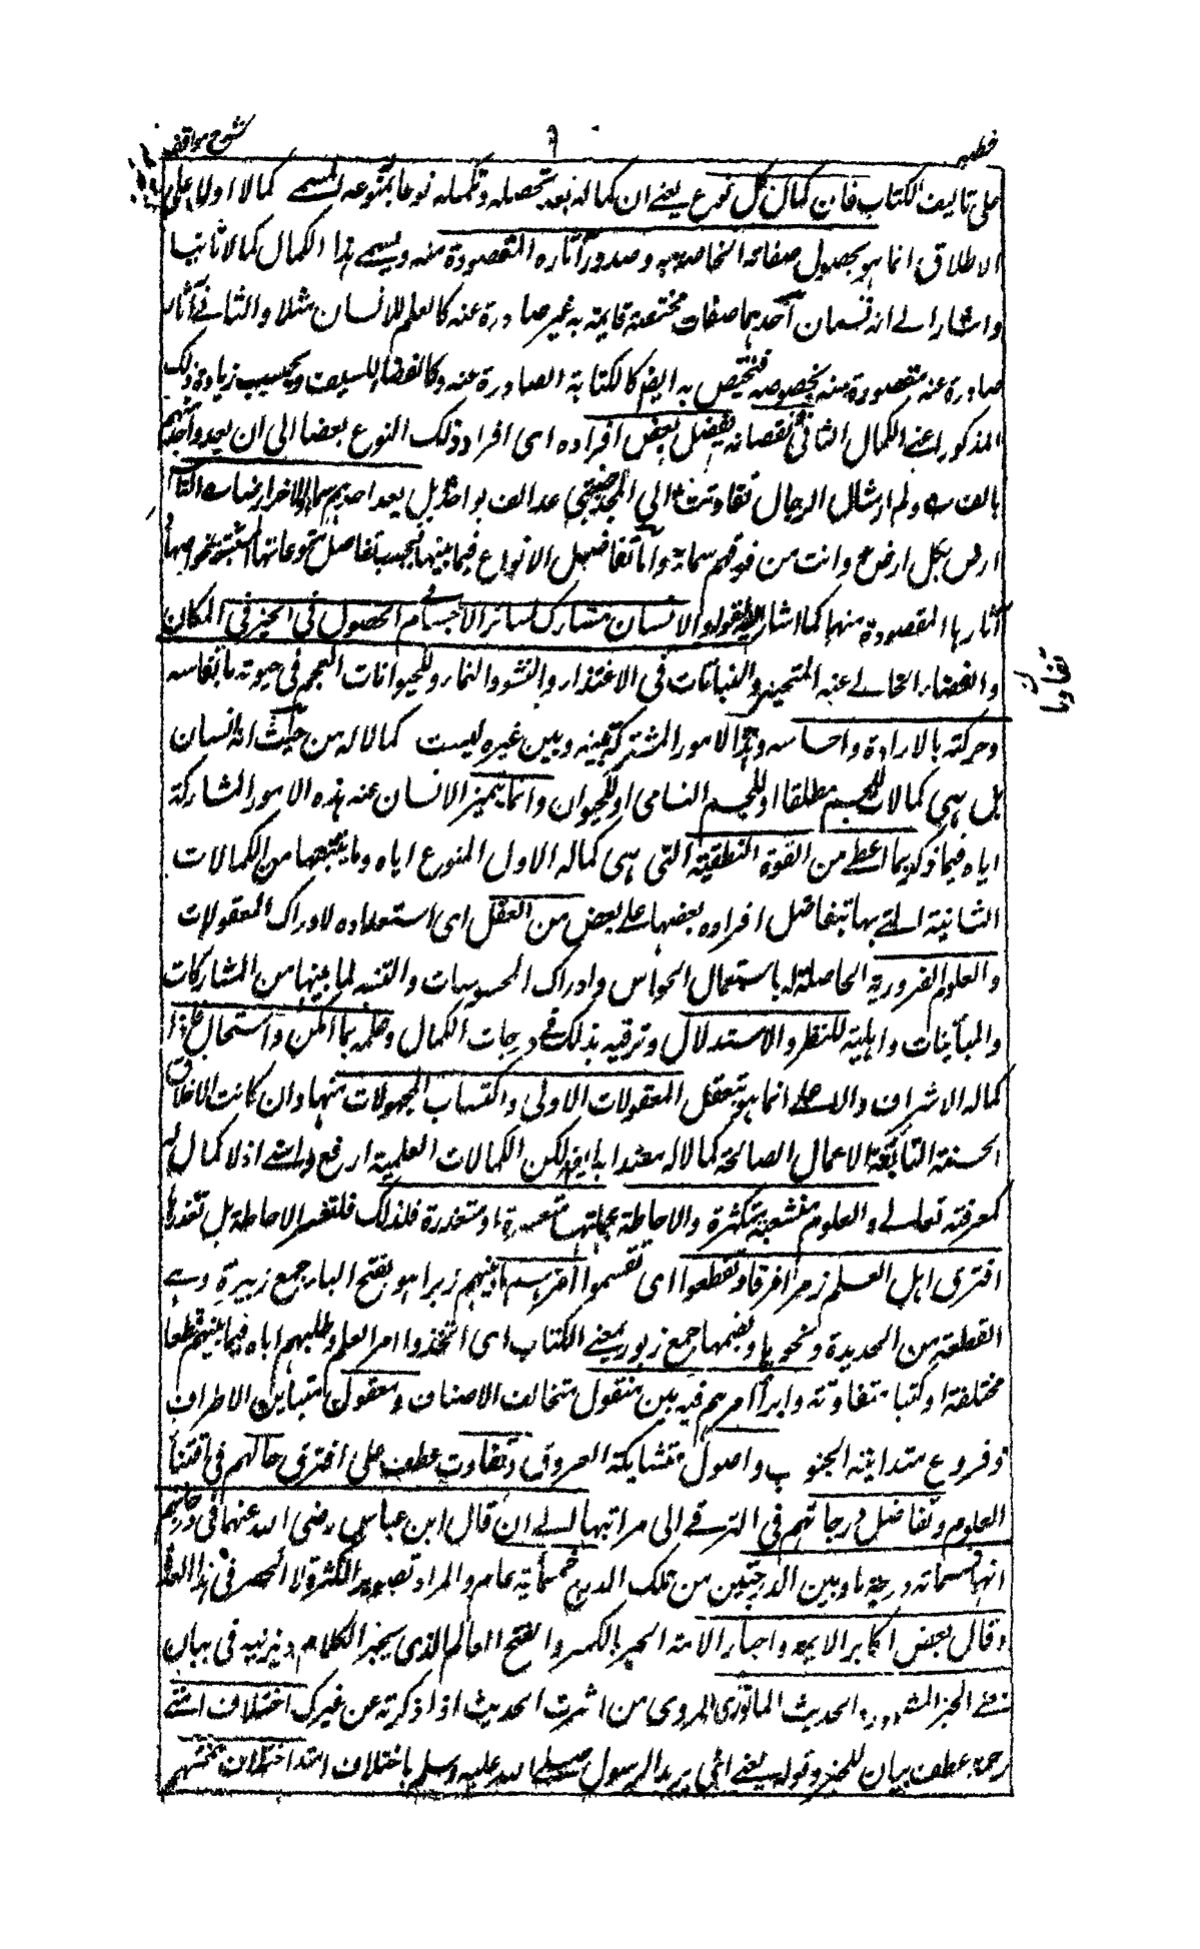 خطبه
٦
شرح مواقف
على تاليف الكتاب فان كمال كل نوع يعني ان كماله بعد تحصله وتكمله نوعا بمنوعه المسمى كمالا اولا على
الاطلاق انما هو بحصول صفاته الخاصة به وصدور آثاره المقصودة منه ويسمى هذا الكمال كمالا ثانيا
واشار الى انه قسمان احدهما صفات مختصة قايمة به غير صادرة عنه كالعلم للانسان مثلا والثاني آثار
صادرة عنه مقصودة منه بخصوصه فتختص به ايضا كالكتابة الصادرة عنه وكالمضاء للسيف وبحسب زيادة ذلك
المذكور اعنى الكمال الثاني ونقصانه يفضل بعض افراده اى افراد ذلك النوع بعضا الى ان يعد واحدهم
بالف س ولم ار مثال الرجال تفاوتت الى المجد حتى عد الف بواحد بل يعد احدهم سماء والاخر ارضا س الناس
ارض بكل ارض وانت من فوقهم سماء واما تفاضل الانواع فيما بينها فبحسب تفاضل منوعاتها المستتبعة لخواصها
آثارها المقصودة منها كما اشار اليه بقوله والانسان مشارك لسائر الاجسام فى الحصول فى الحيز فى المكان
والفضاء الخالي عنه المتحيز والنباتات فى الاغتذاء والنشو والنماء وللحيوانات العجم فى حيوته بانفاسه
وحركته بالارادة واحساسه وهذه الامور المشتركة بينه وبين غيره ليست كمالا له من حيث انه انسان
بل هى كمالات للجسم مطلقا او للجسم النامى او للحيوان وانما يتميز الانسان عنه هذه الامور المشاركة
اياه فيما ذكر بما اعطى من القوة النطقية التى هى كماله الاول المنوع اياه وما يتبعها من الكمالات
الثانية التى بها تتفاضل افراده بعضها على بعض من العقل اى استعداده لادراك المعقولات
والعلوم الضرورية الحاصلة له باستعمال الحواس وادراك المحسوسات والتنبه لما بينها من المشاركات
والمباينات واهلية للنظر والاستدلال وترقيه بذلك فى درجات الكمال وعلمه بما امكن واستحال فاذا
كماله الاشرف والاعلى انما هو بتعقل المعقولات الاولى واكتساب المجهولات منها وان كانت الاخلاق
الحسنة التابعة للاعمال الصالحة كمالا له معتدا به ايضا لكن الكمالات العلمية ارفع واسنى اذ لا كمال له
كمعرفته تعالى والعلوم متشعبة متكثرة والاحاطة بجملتها متعسرة او متعذرة فلذلك فلتعسر الاحاطة بل تعذرها
افترق اهل العلم زمرا فرقا وتقطعوا اى تقسموا امرهم بينهم زبرا هو بفتح الباء جمع زبيرة وهي
القطعة من الحديدة ونحوها وبضمها جمع زبور بمعنى الكتاب اى اتخذوا امر العلم وطلبهم اياه فيما بينهم قطعا
مختلفة او كتبا متفاوتة وابرأ امرهم فيه بين منقول متخالف الاصناف ومعقول متباين الاطراف
وفروع متدانية الجنوب واصول متشابكة العروق وتفاوت عطف على افترق حالهم فى اقتناء
العلوم وتفاضل درجاتهم فى الترقى الى مراتبها الى ان قال ابن عباس رضى الله عنهما فى درجاتهم
انها خمسماته درجة ما بين الدرجتين من تلك الدرج خمسمأية عام والمراد تصوير الكثرة لا الحصر فى هذا العدد
وقال بعض اكابر الايمه واحبار الامة الحبر بالكسر والفتح العالم الذى يحبر الكلام ويزينه فى بيان
معنى الخبر المشهور والحديث الماثور المروى من اثرت الحديث اذا ذكرته عن غيرك اختلاف امتى
رحمة عطف بيان للخبر وقوله يعنى اى يريد الرسول صلى الله عليه وسلم باختلاف امته اختلاف هممهم
تفاوتا